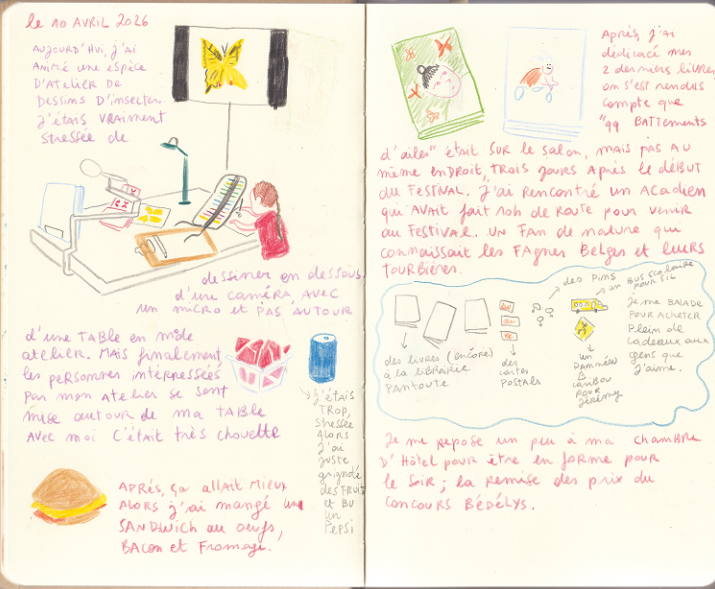 le 10 AVRIL 2026
AUJOURD'HUI, j'ai
ANIMÉ UNE ESPÈCE
D'ATELIER DE
DESSINS D'INSECTES.
J'ÉTAIS VRAIMENT
stressée de
dessiner en dessous
d'une caméra, avec
un micro et pas autour
d'une TABLE en mode
atelier. MAIS finalement
les personnes intéressées
par mon atelier se sont
mise autour de ma TABLE
AVEC moi C'était très chouette
J'ÉTAIS
TROP
stressée
alors
j'ai
juste
grignoté
des FRUITS
et BU
un
PEPSI
APRÈS, ça allait MIEUX
ALORS j'ai mangé un
SANDWICH au oeufs,
BACON et Fromage.
Après, j'ai
dédicacé mes
2 derniers livres
on s'est rendus
compte que
"99 BATTEMENTS
d'ailes" était SUR le salon, mais pas au
même endroit, TROIS jours après le début
du FESTIVAL. J'ai rencontré un Acadien
qui AVAIT fait 10h de Route pour venir
au festival. Un Fan de nature qui
connaissait les FAGNES Belges et leurs
TOURBIÈRES.
des livres (encore)
à la librairie
PANTOUTE
des
cartes
POSTALES
des PINS
un BUS scolaire
POUR
un
PANNEAU
caribou
POUR
Jérémy
je me BALADE
POUR ACHETER
Plein de
cadeaux aux
gens que
j'aime.
Je me repose un peu à ma CHAMBRE
D'Hôtel pour être en forme pour
le soir ; la remise des prix du
concours BÉDÉLYS.